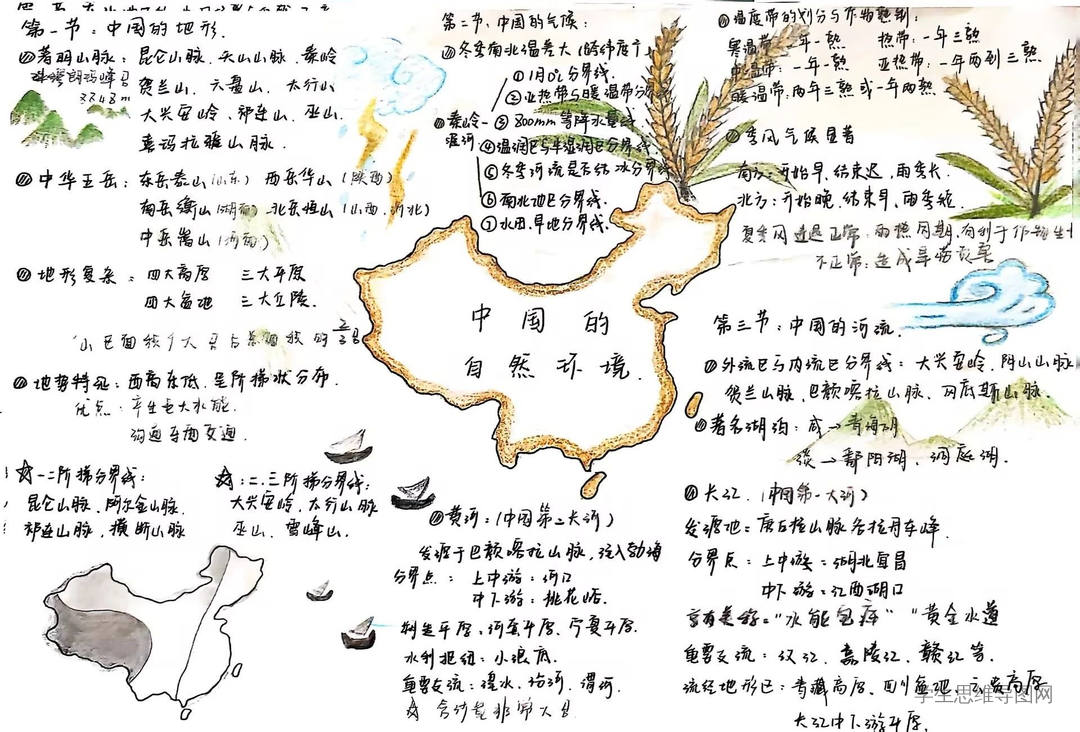 第一节：中国的地形.
著明山脉：昆仑山脉、天山山脉、秦岭
珠穆朗玛峰
贺兰山、六盘山、太行山
大兴安岭、祁连山、巫山、
喜玛拉雅山脉.
中华五岳：东岳泰山（山东） 西岳华山（陕西）
南岳衡山（湖南） 北岳恒山（山西、河北）
中岳嵩山（河南）
地形复杂：四大高原 三大平原
四大盆地 三大丘陵.
地势特征：西高东低、呈阶梯状分布.
优点：产生巨大水能.
沟通东西交通.
☆一二阶梯分界线：
昆仑山脉、阿尔金山脉、
祁连山脉、横断山脉
☆：二、三阶梯分界线：
大兴安岭、太行山脉
巫山、雪峰山.
第二节：中国的气候：
冬季南北温差大（跨纬度广
①1月0℃分界线.
②亚热带与暖温带分
秦岭-淮河
③800mm等降水量线
④湿润区与半湿润区分界线.
⑤冬季河流是否结冰分界
⑥南北地区分界线.
⑦水田、旱地分界线.
温度带的划分与作物熟制：
寒温带：一年一熟 热带：一年三熟
中温带：一年一熟 亚热带：一年两到三熟
暖温带：两年三熟或一年两熟
季风气候显著
南方：开始早、结束迟，雨季长.
北方：开始晚、结束早、雨季短.
夏季风进退正常：雨热同期，有利于作物生
不正常：造成旱涝灾害
中国的
自然环境.
第三节：中国的河流.
外流区与内流区分界线：大兴安岭、阴山山脉
贺兰山脉、巴颜喀拉山脉、冈底斯山脉.
著名湖泊：咸→青海湖
淡→鄱阳湖、洞庭湖.
长江.（中国第一大河）
发源地：唐古拉山脉各拉丹东峰.
分界点：上中游：湖北宜昌
中下游：江西湖口
享有美称："水能宝库" "黄金水道
重要支流：汉江、嘉陵江、赣江等.
流经地形区：青藏高原、四川盆地、云贵高原
长江中下游平原.
黄河：（中国第二大河）
发源于巴颜喀拉山脉，注入渤海
分界点：上中游：河口
中下游：桃花峪.
水利枢纽：小浪底.
重要支流：湟水、汾河、渭河.
☆含沙量非常大
学生思维导图网